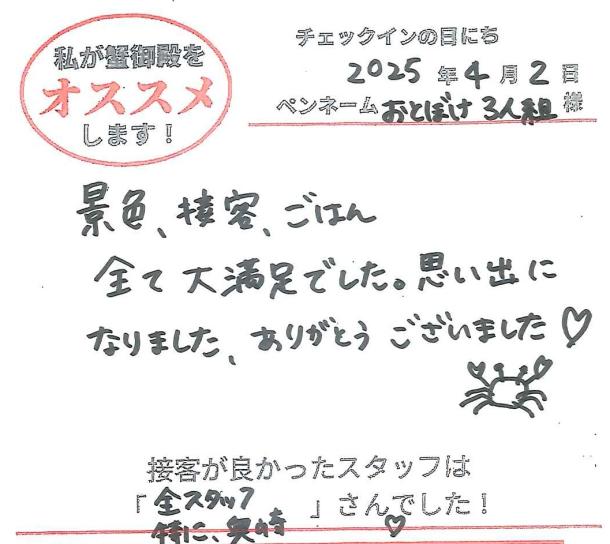 私が蟹御殿を
オススメ
します！
チェックインの日にち
2025年4月2日
ペンネーム おとぼけ3人組 様
景色、接客、ごはん
全て大満足でした。思い出に
なりました、ありがとうございました♡
接客が良かったスタッフは
「全スタッフ 」さんでした！
特に、